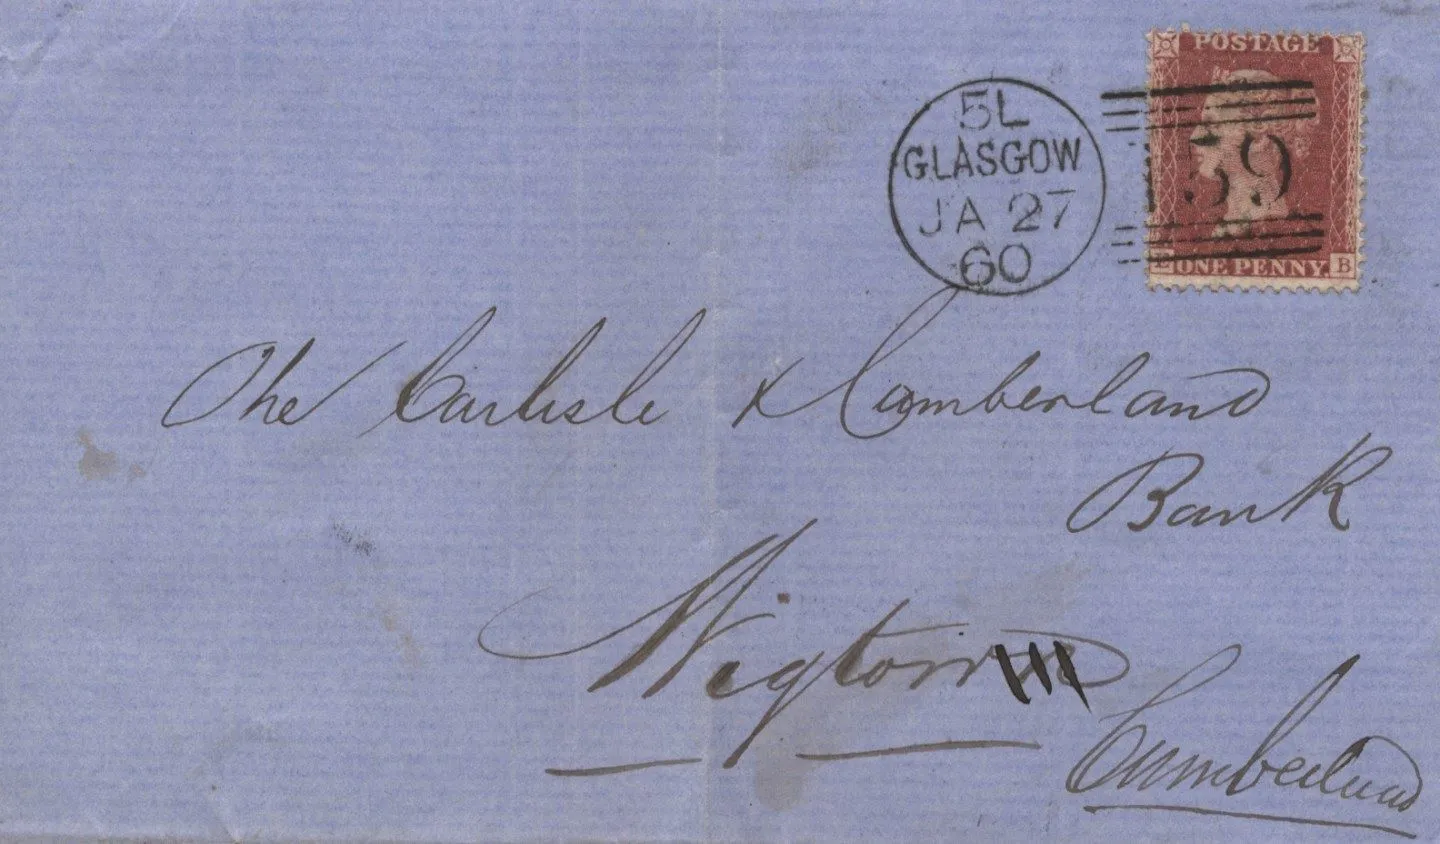 POSTAGE
5L
GLASGOW
JA 27
60
159
ONE PENNY
B
The Carlisle & Cumberland
Bank
Wigton
Cumberland